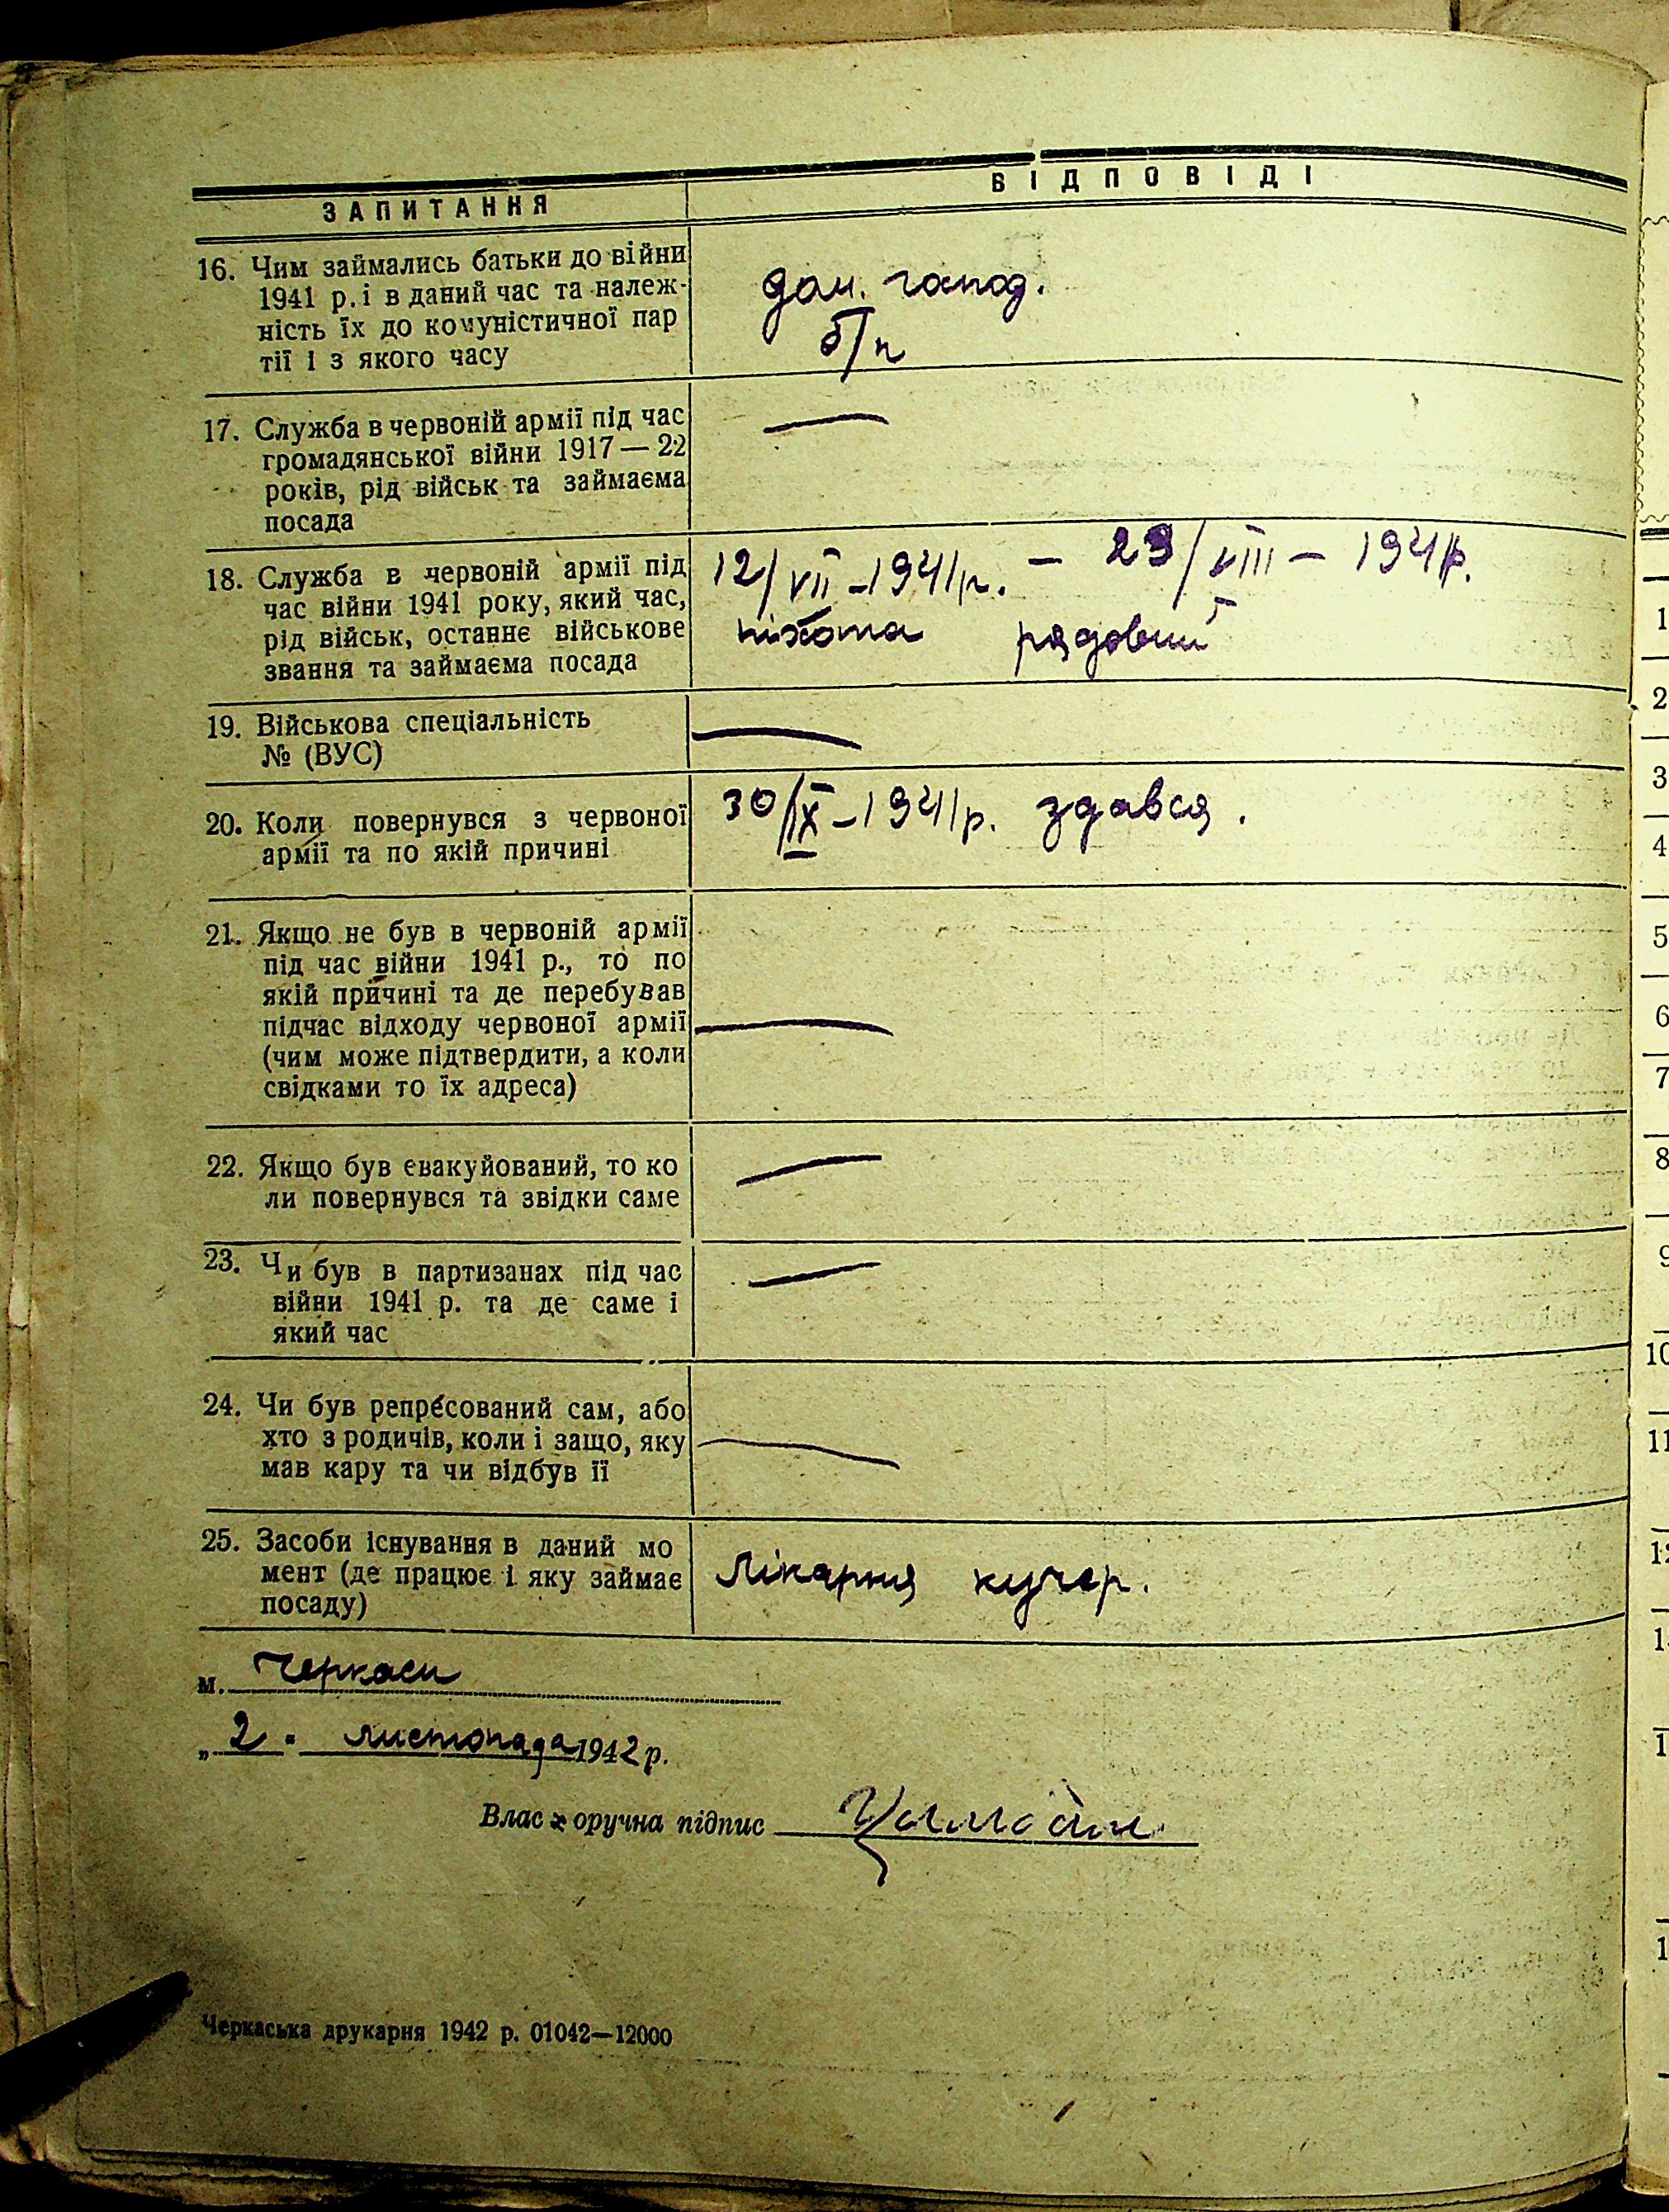 ЗАПИТАННЯ
ВІДПОВІДІ
16. Чим займались батьки до війни
1941 р. і в даний час та належ-
ність їх до комуністичної пар
тії і з якого часу
дом. господ.
б/п
17. Служба в червоній армії під час
громадянської війни 1917 — 22
років, рід військ та займаєма
посада
—
18. Служба в червоній армії під
час війни 1941 року, який час,
рід військ, останнє військове
звання та займаєма посада
12/VII - 1941 р. — 23/VIII — 1941 р.
піхота рядовий
19. Військова спеціальність
№ (ВУС)
—
20. Коли повернувся з червоної
армії та по якій причині
30/IX - 1941 р. здався.
21. Якщо не був в червоній армії
під час війни 1941 р., то по
якій причині та де перебував
підчас відходу червоної армії
(чим може підтвердити, а коли
свідками то їх адреса)
—
22. Якщо був евакуйований, то ко
ли повернувся та звідки саме
—
23. Чи був в партизанах під час
війни 1941 р. та де саме і
який час
—
24. Чи був репресований сам, або
хто з родичів, коли і защо, яку
мав кару та чи відбув її
—
25. Засоби існування в даний мо
мент (де працює і яку займає
посаду)
Лікарня кучер.
м. Черкаси
„ 2 " листопада 1942 р.
Власноручна підпис
Черкаська друкарня 1942 р. 01042—12000
1
2
3
4
5
6
7
8
9
10
11